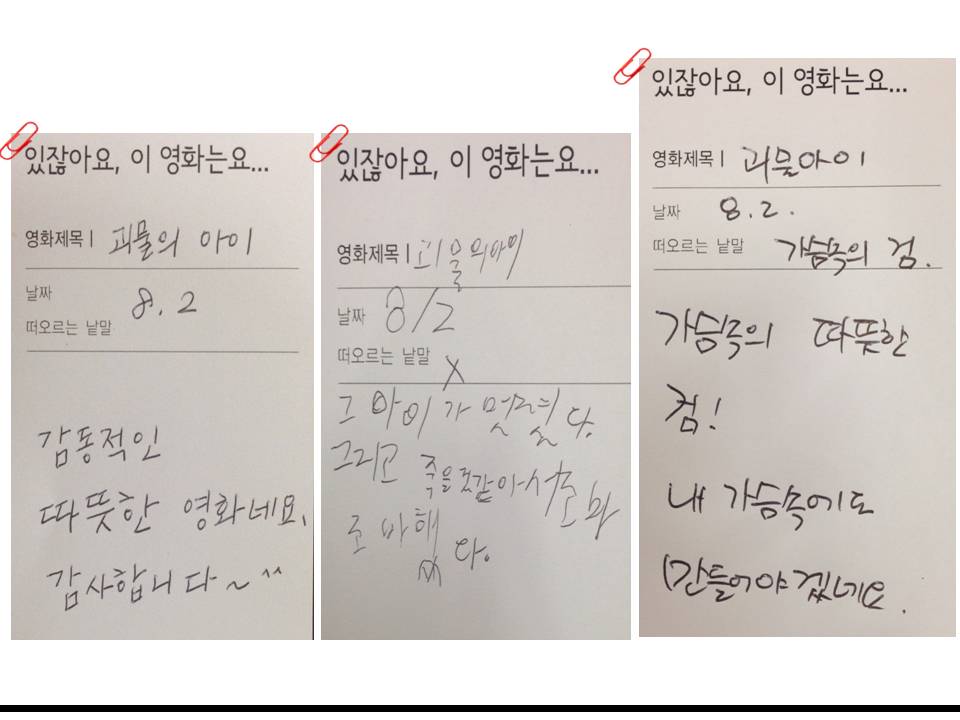 있잖아요, 이 영화는요...
영화제목 | 괴물의 아이
날짜 8. 2
떠오르는 낱말
감동적인
따뜻한 영화네요.
감사합니다~ ^^
있잖아요, 이 영화는요...
영화제목 | 괴물의아이
날짜 8/2
떠오르는 낱말 X
그 아이가
그리고
있잖아요, 이 영화는요...
영화제목 | 괴물아이
날짜 8.2.
떠오르는 낱말 가슴속의 검.
가슴속의 따뜻한
검!
내 가슴속에도
만들어야겠네요.